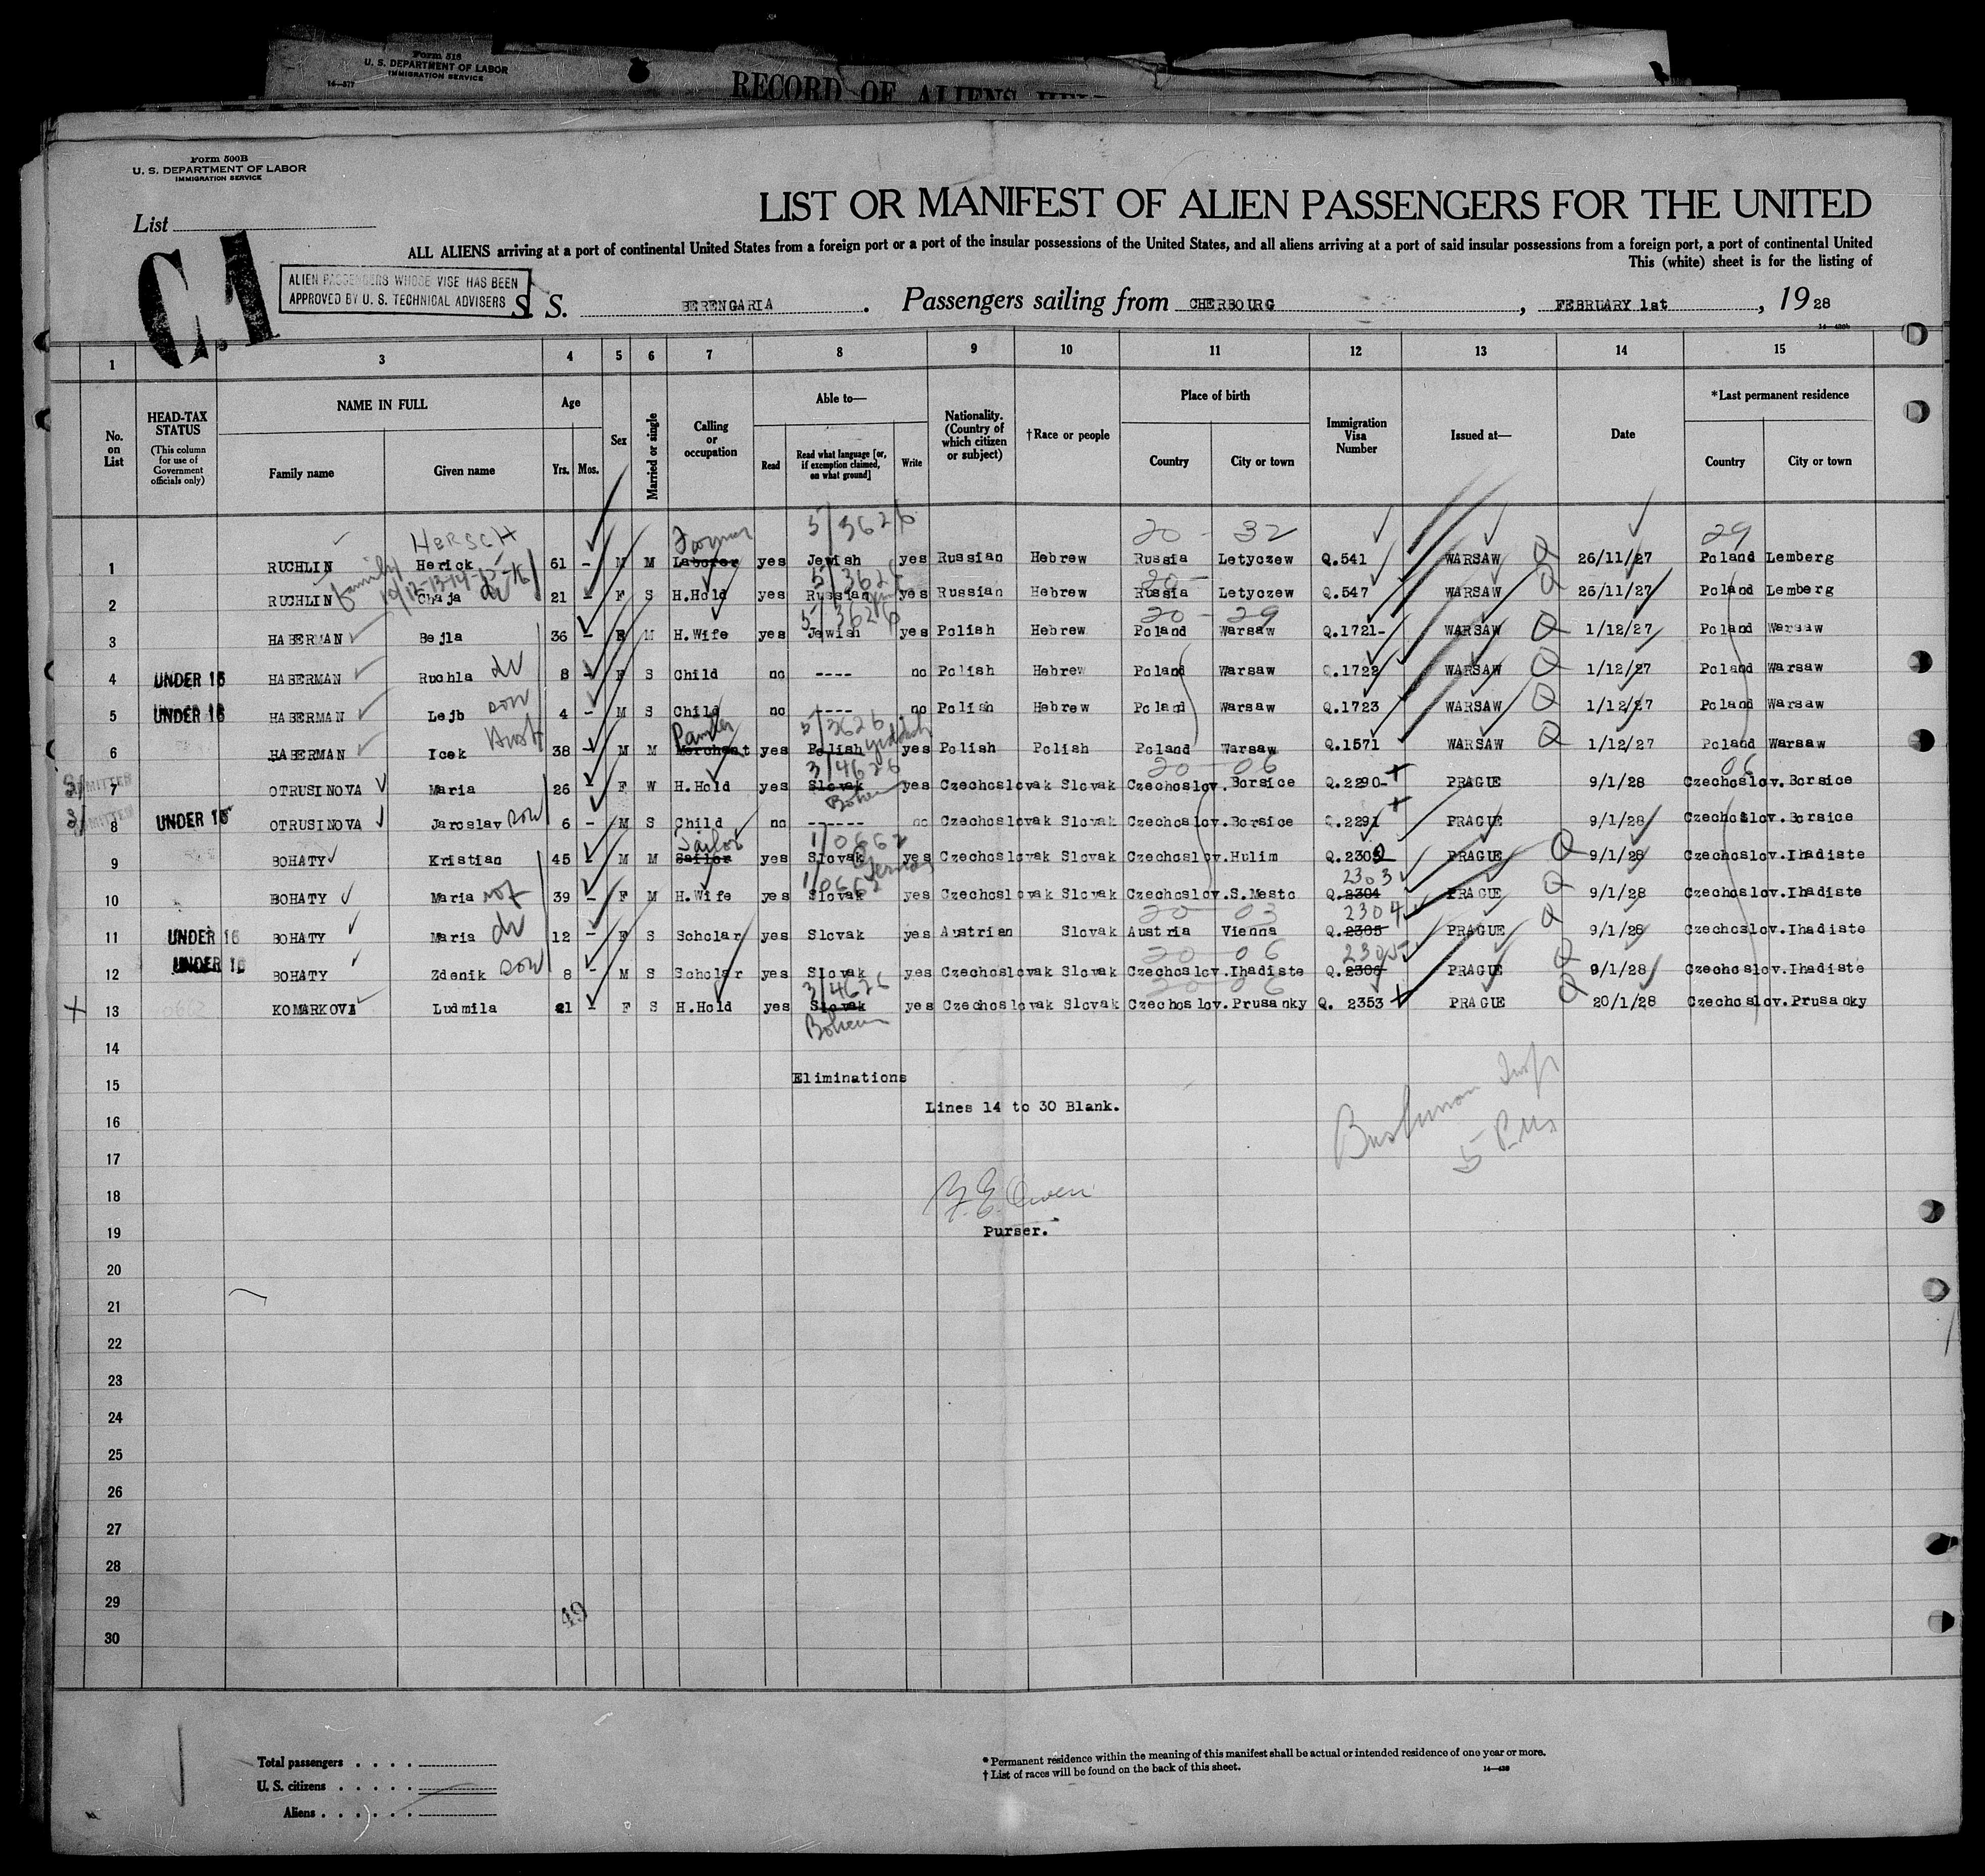 Form 518
U. S. DEPARTMENT OF LABOR
IMMIGRATION SERVICE
14—577
RECORD OF ALIENS HELD
Form 500B
U. S. DEPARTMENT OF LABOR
IMMIGRATION SERVICE
LIST OR MANIFEST OF ALIEN PASSENGERS FOR THE UNITED
List
ALL ALIENS arriving at a port of continental United States from a foreign port or a port of the insular possessions of the United States, and all aliens arriving at a port of said insular possessions from a foreign port, a port of continental United
This (white) sheet is for the listing of
C.1
ALIEN PASSENGERS WHOSE VISE HAS BEEN
APPROVED BY U. S. TECHNICAL ADVISERS
S. S. BERENGARIA. Passengers sailing from CHERBOURG, FEBRUARY 1st, 1928
1 3 4 5 6 7 8 9 10 11 12 13 14 15
No. on List
HEAD-TAX STATUS (This column for use of Government officials only)
NAME IN FULL Family name Given name
Age Yrs. Mos.
Sex
Married or single
Calling or occupation
Able to— Read Read what language [or, if exemption claimed, on what ground] Write
Nationality. (Country of which citizen or subject)
†Race or people
Place of birth Country City or town
Immigration Visa Number
Issued at—
Date
*Last permanent residence Country City or town
HERSCH Farmer 5/3626 20 - 32 29
1 RUCHLIN Herick 61 - M M Laborer yes Jewish yes Russian Hebrew Russia Letyczew Q.541 WARSAW 26/11/27 Poland Lemberg
family 5/3626 20 -
2 RUCHLIN Chaja 21 - F S H.Hold yes Russian yes Russian Hebrew Russia Letyczew Q.547 WARSAW 26/11/27 Poland Lemberg
5/3626 20 - 29
3 HABERMAN Bejla 36 - F M H.Wife yes Jewish yes Polish Hebrew Poland Warsaw Q.1721- WARSAW 1/12/27 Poland Warsaw
4 UNDER 16 HABERMAN Ruchla 8 - F S Child no ---- no Polish Hebrew Poland Warsaw Q.1722 WARSAW 1/12/27 Poland Warsaw
5 UNDER 16 HABERMAN Lejb son 4 - M S Child no ---- no Polish Hebrew Poland Warsaw Q.1723 WARSAW 1/12/27 Poland Warsaw
Husb Painter 5/3626 Yiddish
6 HABERMAN Icek 38 - M M Merchant yes Polish yes Polish Polish Poland Warsaw Q.1571 WARSAW 1/12/27 Poland Warsaw
3/4626 20 - 06 06
7 OTRUSINOVA Maria 26 - F W H.Hold yes Slovak yes Czechoslovak Slovak Czechoslov. Borsice Q.2290- PRAGUE 9/1/28 Czechoslov. Borsice
Bohem
8 UNDER 16 OTRUSINOVA Jaroslav son 6 - M S Child no ------ no Czechoslovak Slovak Czechoslov. Borsice Q.2291 PRAGUE 9/1/28 Czechoslov. Borsice
Sailor 1/0662 German
9 BOHATY Kristian 45 - M M Sailor yes Slovak yes Czechoslovak Slovak Czechoslov. Hulim Q.2302 PRAGUE 9/1/28 Czechoslov. Ihadiste
1/0662 2303
10 BOHATY Maria 39 - F M H.Wife yes Slovak yes Czechoslovak Slovak Czechoslov. S.Mesto Q.2304 PRAGUE 9/1/28 Czechoslov. Ihadiste
20 03 2304
11 UNDER 16 BOHATY Maria 12 - F S Scholar yes Slovak yes Austrian Slovak Austria Vienna Q.2305 PRAGUE 9/1/28 Czechoslov. Ihadiste
20 06 2305
12 UNDER 16 BOHATY Zdenik son 8 - M S Scholar yes Slovak yes Czechoslovak Slovak Czechoslov. Ihadiste Q.2306 PRAGUE 9/1/28 Czechoslov. Ihadiste
3/4626 20 - 06
13 KOMARKOVA Ludmila 21 - F S H.Hold yes Slovak yes Czechoslovak Slovak Czechoslov. Prusanky Q. 2353 PRAGUE 20/1/28 Czechoslov. Prusanky
Bohem
14
15 Eliminations
Lines 14 to 30 Blank.
16
17
18
19 Purser.
20
21
22
23
24
25
26
27
28
29
49
30
Total passengers
U. S. citizens
Aliens
* Permanent residence within the meaning of this manifest shall be actual or intended residence of one year or more.
† List of races will be found on the back of this sheet.